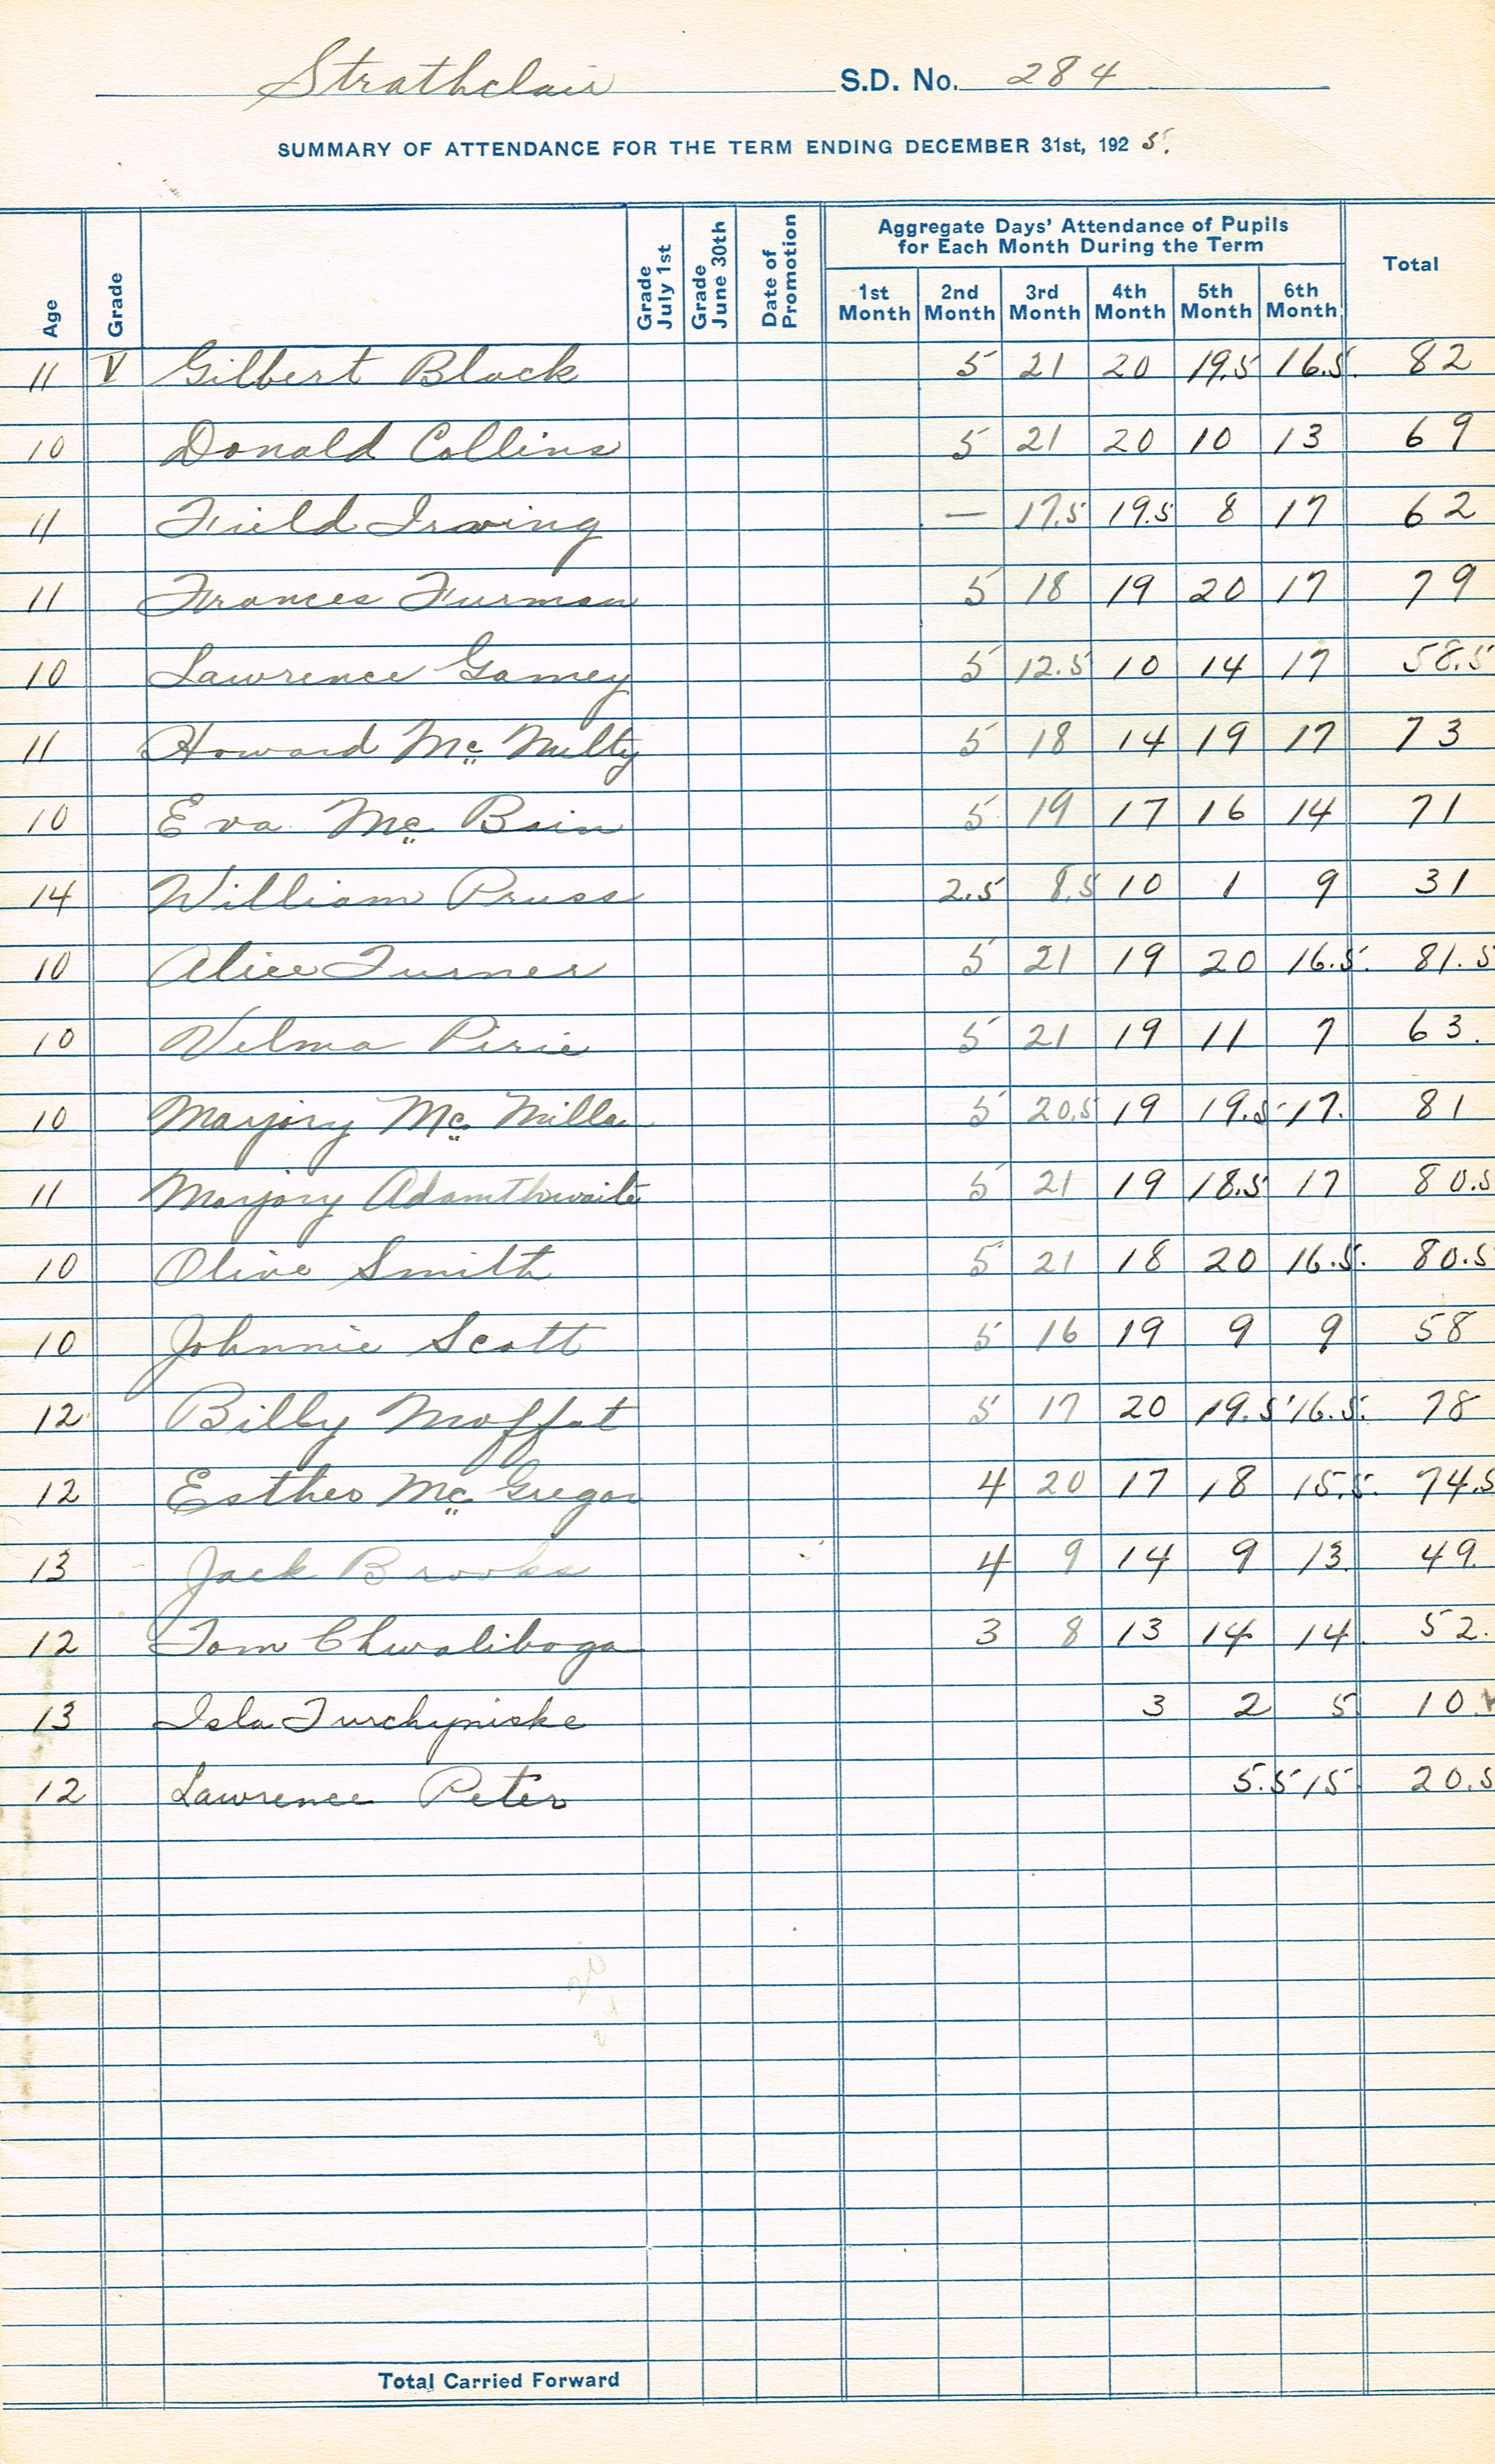 Strathclair S.D. No. 284
SUMMARY OF ATTENDANCE FOR THE TERM ENDING DECEMBER 31st, 1925.
Age Grade Grade July 1st Grade June 30th Date of Promotion Aggregate Days' Attendance of Pupils for Each Month During the Term Total
1st Month 2nd Month 3rd Month 4th Month 5th Month 6th Month
11 V Gilbert Black 5 21 20 19.5 16.5. 82
10 Donald Collins 5 21 20 10 13 69
11 Field Irwing — 17.5 19.5 8 17 62
11 Frances Furman 5 18 19 20 17 79
10 Lawrence Gamey 5 12.5 10 14 17 58.5
11 Howard Mc Nulty 5 18 14 19 17 73
10 Eva Mc Bain 5 19 17 16 14 71
14 William Pruss 2.5 8.5 10 1 9 31
10 Alice Turner 5 21 19 20 16.5. 81.5
10 Velma Pirie 5 21 19 11 7 63.
10 Marjory Mc Millan 5 20.5 19 19.5 17. 81
11 Marjory Adamthwaite 5 21 19 18.5 17 80.5
10 Olive Smith 5 21 18 20 16.5. 80.5
10 Johnnie Scott 5 16 19 9 9 58
12 Billy Moffat 5 17 20 19.5 16.5. 78
12 Esther Mc Gregor 4 20 17 18 15.5. 74.5
13 Jack Brooks 4 9 14 9 13. 49.
12 Tom Chwaliboga 3 8 13 14 14. 52.
13 Isla Turchyniske 3 2 5 10
12 Lawrence Peter 5.5 15 20.5
Total Carried Forward